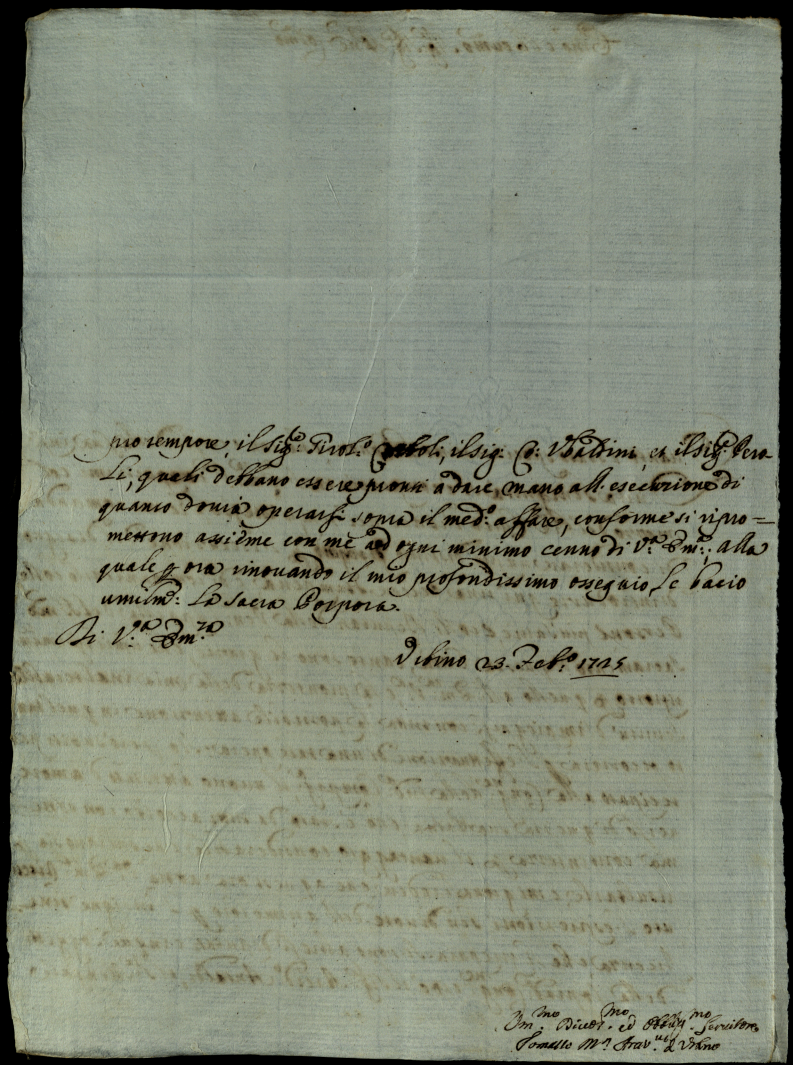 pro tempore, il Sig.r Girol.o il Sig. C. Vbaldini, et il Sig.r Vera
li, quali debbano essere pronti a dare mano all'esecuzione di
quanto dovrà operarsi sopra il med.o affare, conforme si ripro=
mettono assieme con me ad ogni minimo cenno di V.a Em.a: alla
quale p ora rinovando il mio profondissimo ossequio, le bacio
umilm.e La Sacra Porpora.
Di V.a Em.za
Vrbino 23. Feb.o 1725
Vm.mo Divot.mo ed Obblig.mo Servitore
Tomasso M.a Arciv.o d'Vrbino